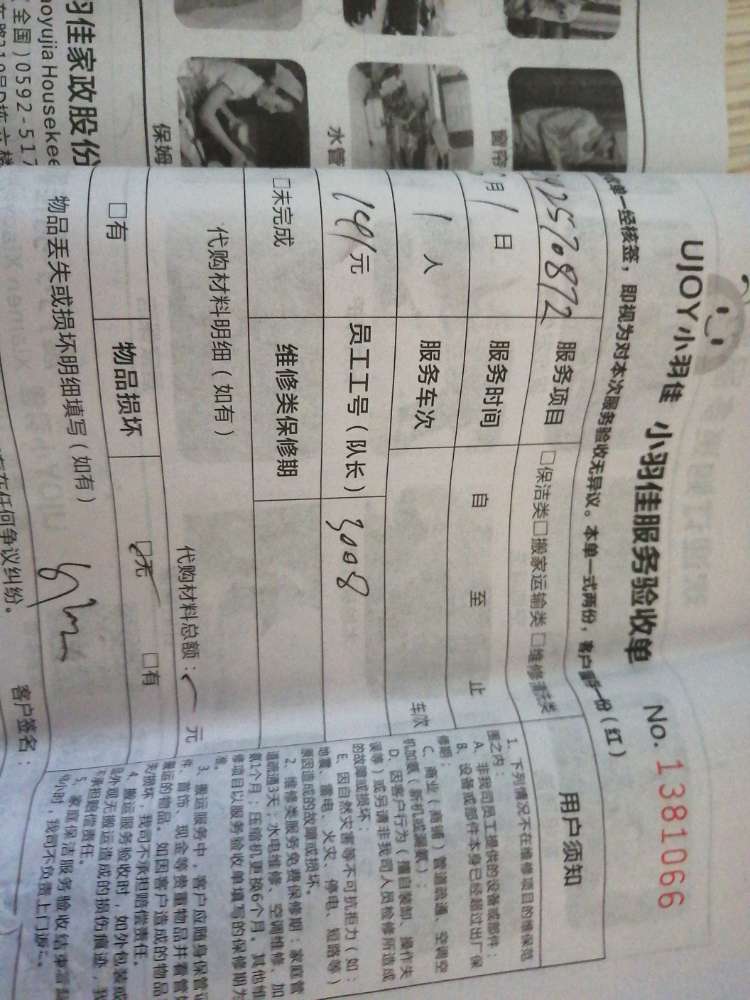 羽佳家政股份
aoyujiaHousekee
全国)0592-517
保姆
水管
窗帘
UJOY小羽佳 小羽佳服务验收单 No. 1381066
单一经核签，即视为对本次服务验收无异议。本单一式两份，客户留一份(红)
服务项目 □保洁类□搬家运输类□维修清洗类
月1日 服务时间 自 至 止
1人 服务车次 车次
元 员工工号(队长) 3008
□未完成 维修类保修期
代购材料明细(如有) 代购材料总额： 元
□有 物品损坏 □无 □有
物品丢失或损坏明细填写(如有)
存在任何争议纠纷。 客户签名：
用户须知
1、下列情况不在维修项目的维保范
围之内：
A、非我司员工提供的设备或部件；
B、设备或部件本身已经超过出厂保
修期；
C、商业(商铺)管道疏通、空调空
机加氨(新机或漏氟)；
D、因客户行为(擅自装卸、操作失
误等)或另请非我司人员检修所造成
的故障或损坏；
E、因自然灾害等不可抗拒力(如：
地震、雷电、火灾、停电、短路等)
原因造成的故障或损坏。
2、维修类服务免费保修期：家庭管
道疏通3天；水电维修、空调维修、加
氟1个月；压缩机更换6个月。其他维
修项目以服务验收单填写的保修期为
准。
3、搬运服务中，客户应随身保管证
件、首饰、现金等贵重物品并看管
搬运的物品。如因客户造成的物品
损坏，我司不承担赔偿责任。
4、搬运服务验收时，如外包装或
外观无搬运造成的损伤痕迹，我
承担赔偿责任。
5、家庭保洁服务验收结束离
小时，我司不负责上门返